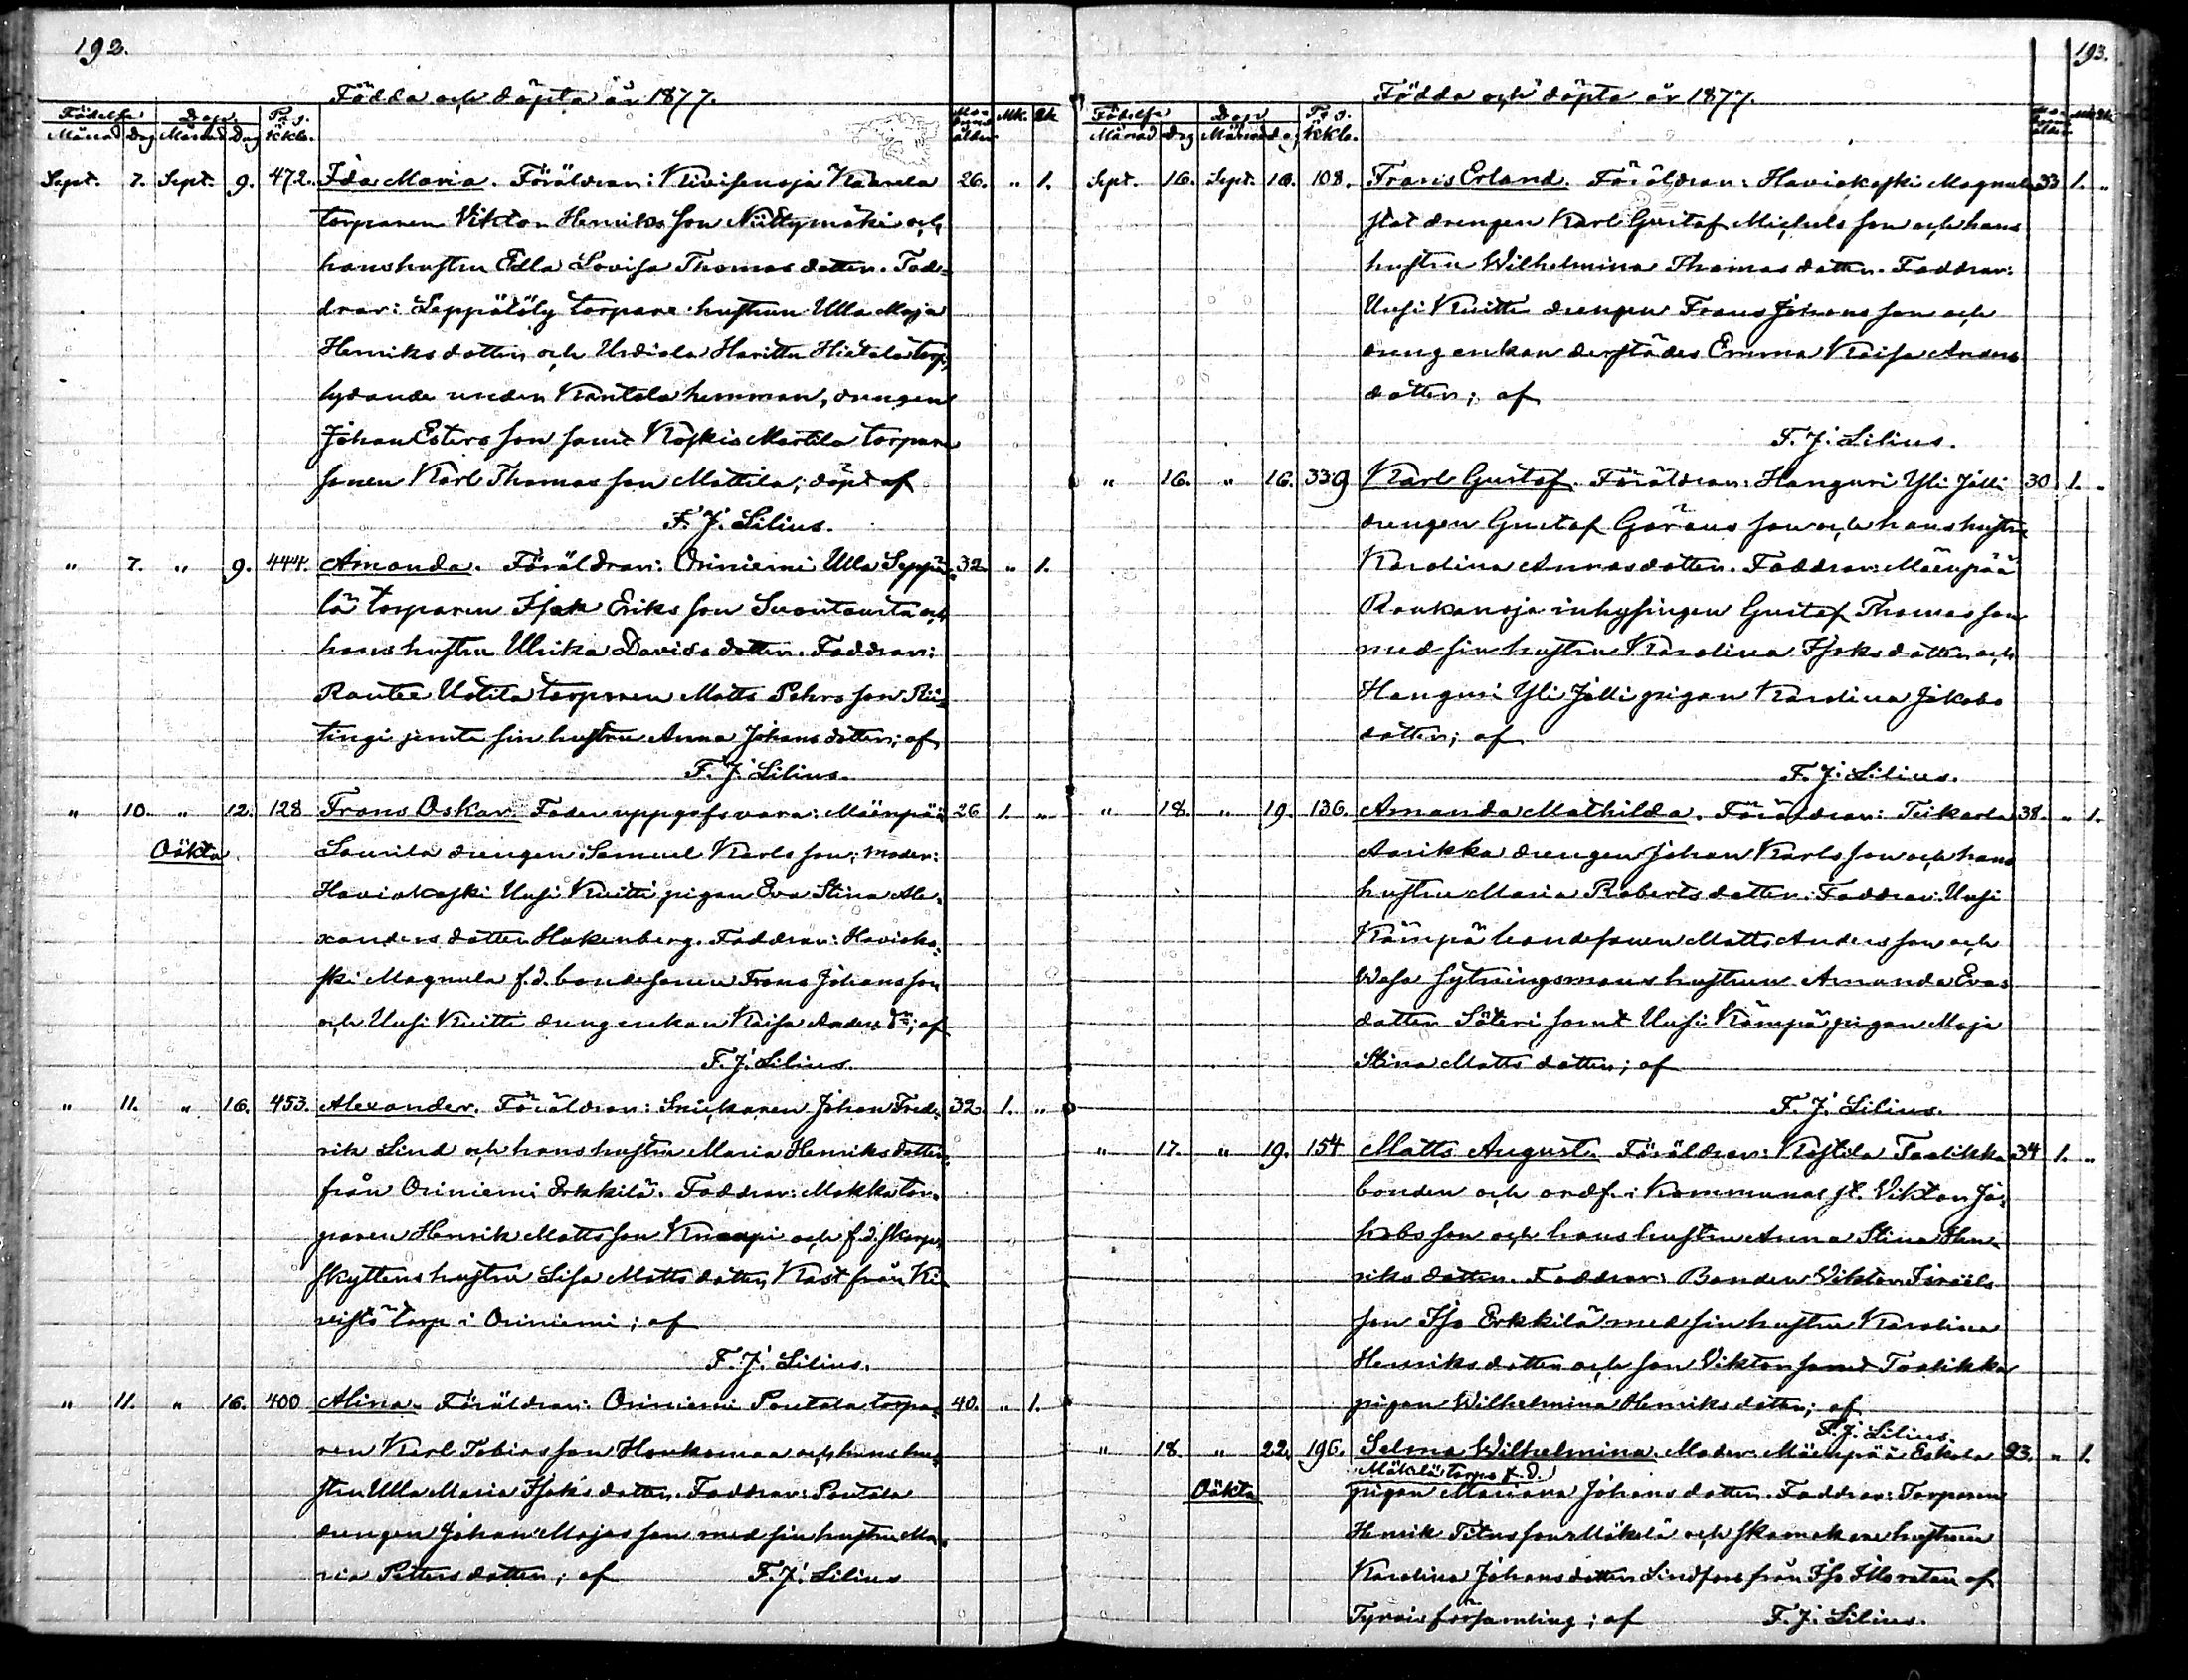 192.
Födda och döpta år 1877.
Födelse Dop Pag. i kkb. Moderns ålder Mk. Qk.
Månad Dag Månad Dag
Sept. 7. Sept. 9. 472. Ida Maria. Föräldrar: Kaarela 26. " 1.
torparen Viktor Henriksson Niittymäki och
hans hustru Edla Lovisa Thomasdotter. Fad-
drar: Seppälöly torpare hustrun Ulla Maja
Henriksdotter och Urdiala Harittu Hietala torp,
lydande under Kantola hemman, drengen
Johan Estersson samt Koskis Martila torpare
sonen Karl Thomasson Mattila; döpt af
F. J. Lilius.
" 7. " 9. 444. Amanda. Föräldrar: Oriniemi Ulla Seppä- 32. " 1.
lä torparen Isak Eriksson Suontausta och
hans hustru Ulrika Davidsdotter. Faddrar:
Rautee Uotila torparen Matts Pehrsson Rii-
tingi jemte sin hustru Anna Johansdotter; af
F. J. Lilius.
" 10. " 12. 128 Frans Oskar. Fader uppgafs vara: Mäenpää 26 1. "
Oäkta Laurila drengen Samuel Karlsson; moder:
Haviokoski Uusi Kuitti pigan Eva Stina Ale-
xandersdotter Hakenberg. Faddrar: Havioko-
ski Magnula f.d. bondesonen Frans Johansson
och Uusi Kuitti drengenkan Kaisa Anders dr; af
F. J. Lilius.
" 11. " 16. 453. Alexander. Föräldrar: Snickaren Johan Fred- 32. 1. "
rik Lind och hans hustru Maria Henriksdotter
från Oriniemi Erkkilä. Faddrar: Mokka tor-
paren Henrik Mattsson Knaapi och f.d. skarp-
skyttens hustru Lisa Mattsdotter Kast från Ki-
vistö torp i Oriniemi; af
F. J. Lilius.
" 11. " 16. 400 Alina. Föräldrar: Oriniemi Poutala torpa- 40. " 1.
ren Karl Tobiasson Honkamaa och hans hu-
stru Ulla Maria Isaksdotter. Faddrar: Poutala
drengen Johan Majasson med sin hustru Ma-
ria Pettersdotter; af F. J. Lilius
193.
Födda och döpta år 1877.
Födelse Dop Pag. i kkb. Moderns ålder mk. Qk.
Månad Dag Månad dag
Sept. 16. Sept. 16. 108. Frans Erland. Föräldrar: Haviokoski Magnula 33 1. "
statdrengen Karl Gustaf Michelsson och hans
hustru Wilhelmina Thomasdotter. Faddrar:
Uusi Kuitti drengen Frans Johansson och
drengenkan derstädes Emma Kaisa Anders
dotter; af
F. J. Lilius.
" 16. " 16. 339 Karl Gustaf. Föräldrar: Hanguri Yli Jälli 30 1. "
drengen Gustaf Göransson och hans hustru
Karolina Annasdotter. Faddrar: Mäenpää
Raukanoja inhysingen Gustaf Thomasson
med sin hustru Karolina Isaksdotter och
Hanguri Yli Jälli pigan Karolina Jakobs
dotter; af
F. J. Lilius.
" 18. " 19. 136. Amanda Mathilda. Föräldrar: Teikarla 38. " 1.
Aarikka drengen Johan Karlsson och hans
hustru Maria Robertsdotter. Faddrar: Uusi
Kämpä bondesonen Matts Andersson och
Wesa sytningsmans hustrun Amanda Evas-
dotter Säteri samt Uusi Kämpä pigan Maja
Stina Mattsdotter; af
F. J. Lilius.
" 17. " 19. 154 Matts August. Föräldrar: Kostila Taalikka 34 1. "
bonden och ordf. i Kommunal st. Viktor Ja-
kobsson och hans hustru Anna Stina Hen-
riksdotter. Faddrar: Bonden Viktor Israels-
son Iso Erkkilä med sin hustru Karolina
Henriksdotter och son Viktor samt Taalikka
pigan Wilhelmina Henriksdotter; af
F. J. Lilius.
" 18. " 22. 196. Selma Wilhelmina. Moder: Mäenpää Eskola 23. " 1.
Mäkelä torps f.d.
Oäkta pigan Mariana Johansdotter. Faddrar: Torparen
Henrik Titusson Mäkelä och skomakare hustrun
Karolina Johansdotter Lindfors från Iso af
Tyrvis församling; af F. J. Lilius.